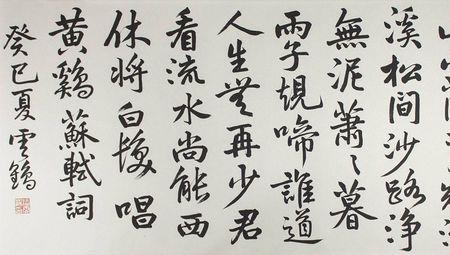 溪松間沙路净
無泥蕭〻暮
雨子規啼誰道
人生無再少君
看流水尚能西
休將白髮唱
黄鷄 蘇軾詞
癸巳夏雲鶴